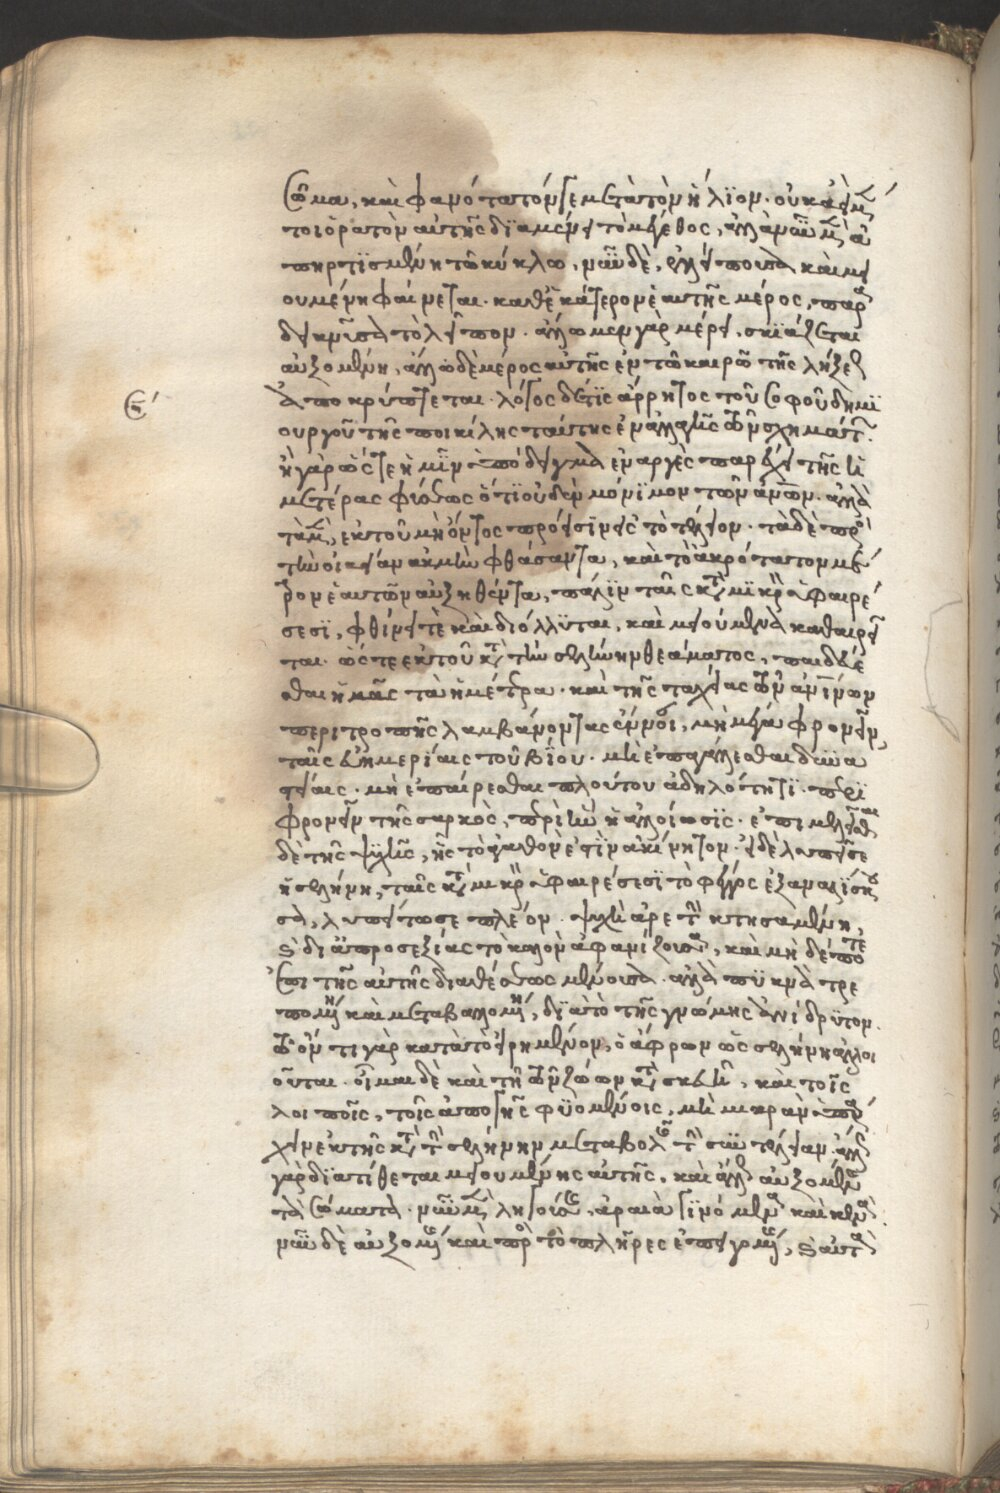 σῶμα, καὶ φανότατόν γε μετὰ τὸν ἥλϊον. οὐκ ἀεὶ μέν
τοι ὁρατὸν αὐτῆς δϊαμένει τὸ μέγεθος, ἀλλὰ νῦν μὲν ἀ
πηρτϊσμένη τῶ κύκλω, νῦν δὲ, ἐλλείπουσα καὶ μει
ουμένη φαίνεται. καθ' ἑκάτερον ἑαυτῆς μέρος, παρα
δεικνῦσα τὸ λεῖπον. ἄλλω μὲν γὰρ μέρει, σκϊάζεται
αὐξομένη, ἄλλω δὲ μέρος αὐτῆς ἐν τῶ καιρῶ τῆς λήξεως
ἀποκρύπτεται. λόγος δέ τϊς ἄρρητος τοῦ σοφοῦ δημϊ
ουργοῦ τῆς ποικίλης ταύτης ἐναλλαγῆς τῶν σχημάτων.
ἢ γὰρ ὥστε ἡμῖν ὑπόδειγμα ἐναργὲς παρέχει τῆς ἡ
μετέρας φύσεως ὅτϊ οὐδὲν μόνϊμον τῶν ἀνθρωπίνων. ἀλλὰ
τὰ μὲν, ἐκ τοῦ μὴ ὄντος πρόεισϊν εἰς τὸ τέλειον. τὰ δὲ πρὸς
τὴν οἰκείαν ἀκμὴν φθάσαντα, καὶ τὸ ἀκρότατον μέ
τρον ἑαυτῶν αὐξηθέντα, πάλϊν ταῖς κατὰ μϊκρὸν ὑφαιρέ
σεσϊ, φθίνει τὲ καὶ διόλλϋται, καὶ μειούμενα καθαιρεῖ
ται. ὥς τε ἐκ τοῦ κατὰ τὴν σελήνην θεάματος, παιδεύε
σθαι ἡμᾶς τὰ ἡμέτερα. καὶ τῆς ταχείας τῶν ἀνθρωπίνων
περιτροπῆς λαμβάνοντας ἔννοιαν, μὴ μέγα φρονεῖν
ταῖς εὐημερίαις τοῦ βίου. μὴ ἐπαγάλλεσθαι δυνα
στείαις. μὴ ἐπαίρεσθαι πλούτου ἀδηλότητϊ. περϊ
φρονεῖν τῆς σαρκὸς, περὶ ἣν ἡ ἀλλοίωσϊς. ἐπιμελεῖσθαι
δὲ τῆς ψυχῆς, ἧς τὸ ἀγαθὸν ἐστῒν ἀκίνητον. εἰ δὲ λυπεῖ σε
ἡ σελήνη, ταῖς κατὰ μικρὸν ὑφαιρέσεσϊ τὸ φέγγος ἐξαναλϊσκου
σα, λυπείτω σε πλέον. ψυχὴ ἀρετὴν κτησαμένη,
καὶ δι' ἀπροσεξίας τὸ καλὸν ἀφανίζουσα, καὶ μὴ δέποτε
ἐπι τῆς αὐτῆς διαθέσεως μένουσα. ἀλλὰ πϋκνὰ τρε
πομένη καὶ μεταβαλλομένη, δϊὰ τὸ τῆς γνώμης ἀνίδρϋτον.
τῶ ὄντι γὰρ κατὰ τὸ εἰρημένον, ὁ ἄφρων ὡς σελήνη ἀλλοι
οῦται. οἶμαι δὲ καὶ τῆ τῶν ζώων κατασκευῆ, καὶ τοῖς
λοιποῖς, τοῖς ἀπὸ γῆς φϋομένοις, μὴ μικρὰν ὑπάρ
χειν ἐκ τῆς κατὰ τὴν σελήνην μεταβολῆς τὴν συντέλειαν. ἄλλως
γὰρ δϊατίθεται μειουμένης αὐτῆς, καὶ ἄλλως αὐξομένης
τὰ σώματα. νῦν μὲν ληγούσης, ἀραιὰ γϊνόμενα καὶ κενὰ.
νῦν δὲ αὐξομένης καὶ πρὸς τὸ πλῆρες ἐπειγομένης, καὶ αὐτὰ